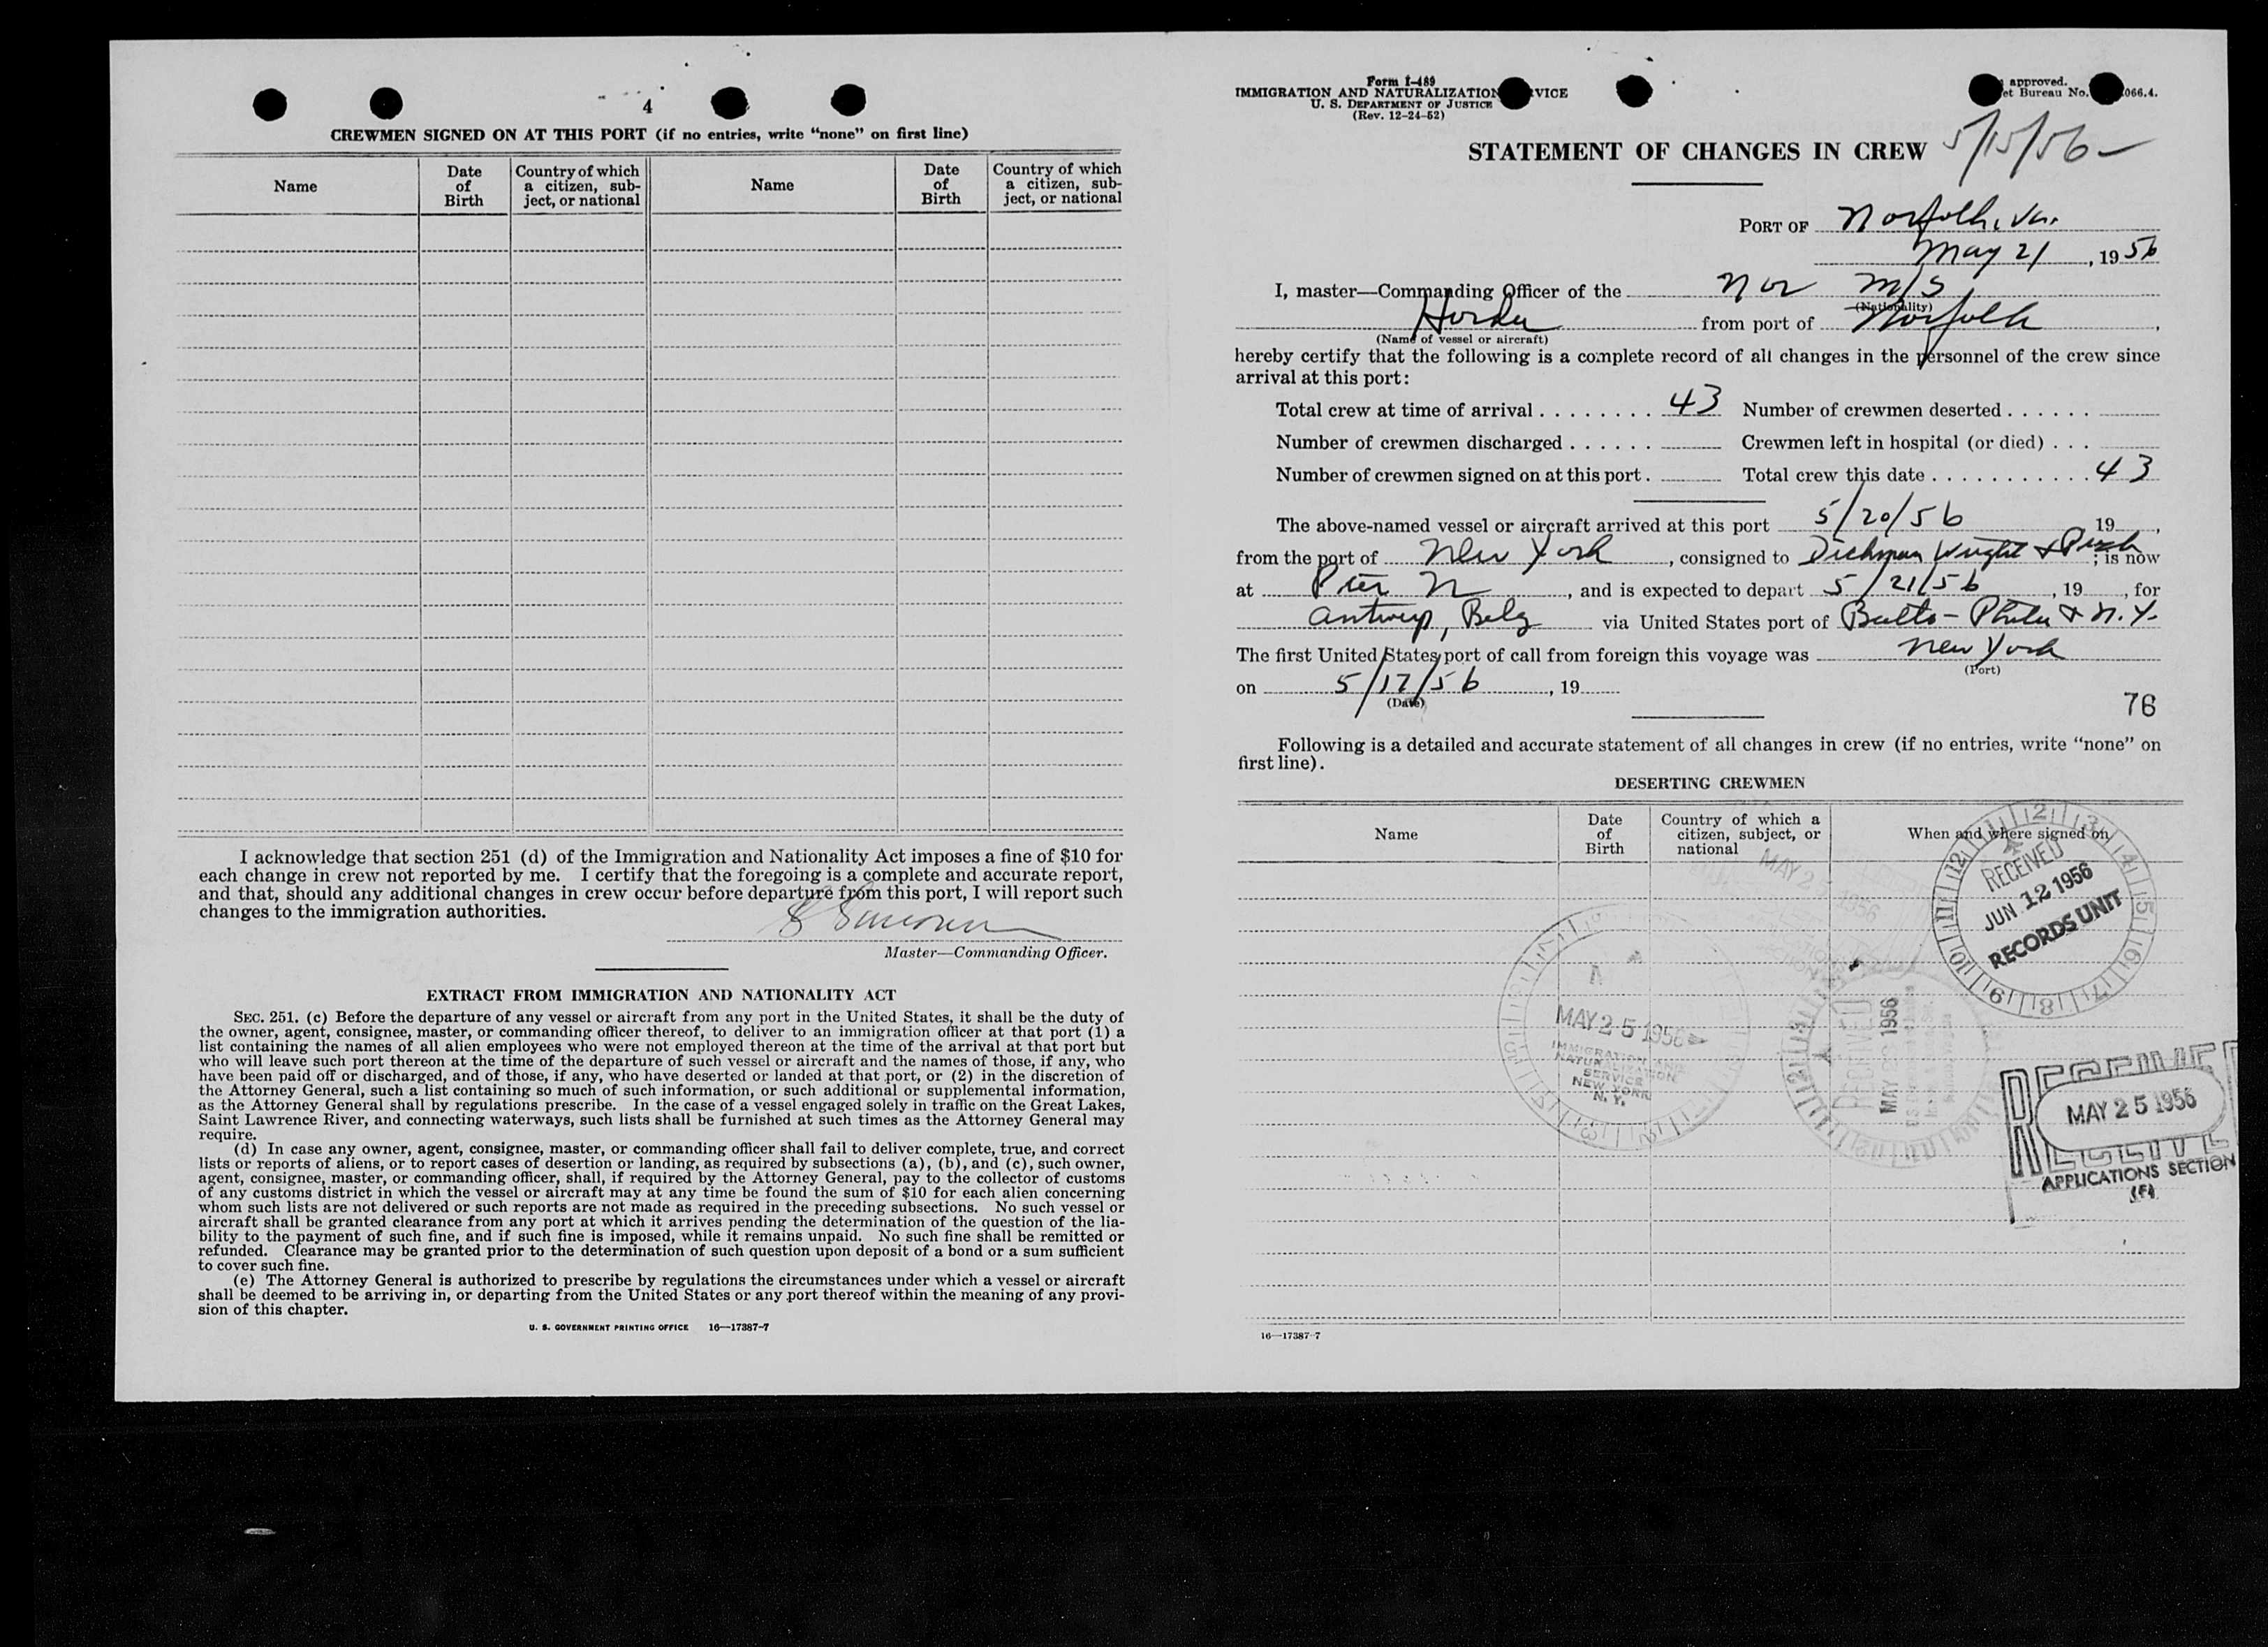 4
CREWMEN SIGNED ON AT THIS PORT (if no entries, write "none" on first line)
Name
Date of Birth
Country of which a citizen, subject, or national
Name
Date of Birth
Country of which a citizen, subject, or national
I acknowledge that section 251 (d) of the Immigration and Nationality Act imposes a fine of $10 for
each change in crew not reported by me. I certify that the foregoing is a complete and accurate report,
and that, should any additional changes in crew occur before departure from this port, I will report such
changes to the immigration authorities.
Master—Commanding Officer.
EXTRACT FROM IMMIGRATION AND NATIONALITY ACT
SEC. 251. (c) Before the departure of any vessel or aircraft from any port in the United States, it shall be the duty of
the owner, agent, consignee, master, or commanding officer thereof, to deliver to an immigration officer at that port (1) a
list containing the names of all alien employees who were not employed thereon at the time of the arrival at that port but
who will leave such port thereon at the time of the departure of such vessel or aircraft and the names of those, if any, who
have been paid off or discharged, and of those, if any, who have deserted or landed at that port, or (2) in the discretion of
the Attorney General, such a list containing so much of such information, or such additional or supplemental information,
as the Attorney General shall by regulations prescribe. In the case of a vessel engaged solely in traffic on the Great Lakes,
Saint Lawrence River, and connecting waterways, such lists shall be furnished at such times as the Attorney General may
require.
(d) In case any owner, agent, consignee, master, or commanding officer shall fail to deliver complete, true, and correct
lists or reports of aliens, or to report cases of desertion or landing, as required by subsections (a), (b), and (c), such owner,
agent, consignee, master, or commanding officer, shall, if required by the Attorney General, pay to the collector of customs
of any customs district in which the vessel or aircraft may at any time be found the sum of $10 for each alien concerning
whom such lists are not delivered or such reports are not made as required in the preceding subsections. No such vessel or
aircraft shall be granted clearance from any port at which it arrives pending the determination of the question of the lia-
bility to the payment of such fine, and if such fine is imposed, while it remains unpaid. No such fine shall be remitted or
refunded. Clearance may be granted prior to the determination of such question upon deposit of a bond or a sum sufficient
to cover such fine.
(e) The Attorney General is authorized to prescribe by regulations the circumstances under which a vessel or aircraft
shall be deemed to be arriving in, or departing from the United States or any port thereof within the meaning of any provi-
sion of this chapter.
U. S. GOVERNMENT PRINTING OFFICE 16—17387-7
Form I-489
IMMIGRATION AND NATURALIZATION VICE
U. S. DEPARTMENT OF JUSTICE
(Rev. 12-24-52)
approved.
et Bureau No. 066.4.
STATEMENT OF CHANGES IN CREW 5/15/56
PORT OF Norfolk, Va.
May 21, 1956
I, master—Commanding Officer of the Nor M/S
(Nationality)
from port of Norfolk,
(Name of vessel or aircraft)
hereby certify that the following is a complete record of all changes in the personnel of the crew since
arrival at this port:
Total crew at time of arrival 43 Number of crewmen deserted
Number of crewmen discharged Crewmen left in hospital (or died)
Number of crewmen signed on at this port. Total crew this date 43
The above-named vessel or aircraft arrived at this port 5/20/56 19 ,
from the port of New York, consigned to Dichman Wright & Pugh; is now
at Pier N, and is expected to depart 5/21/56, 19 , for
Antwerp, Belg via United States port of Balto - Phila & N.Y.
The first United States port of call from foreign this voyage was New York
(Port)
on 5/17/56, 19
(Date)
76
Following is a detailed and accurate statement of all changes in crew (if no entries, write "none" on
first line).
DESERTING CREWMEN
Name
Date of Birth
Country of which a citizen, subject, or national
When and where signed on
RECEIVED
JUN 12 1956
RECORDS UNIT
MAY 25 1956
IMMIGRATION AND
NATURALIZATION
SERVICE
NEW YORK
N. Y.
RECEIVED
MAY 1956
RECEIVED
MAY 25 1956
APPLICATIONS SECTION
16—17387-7